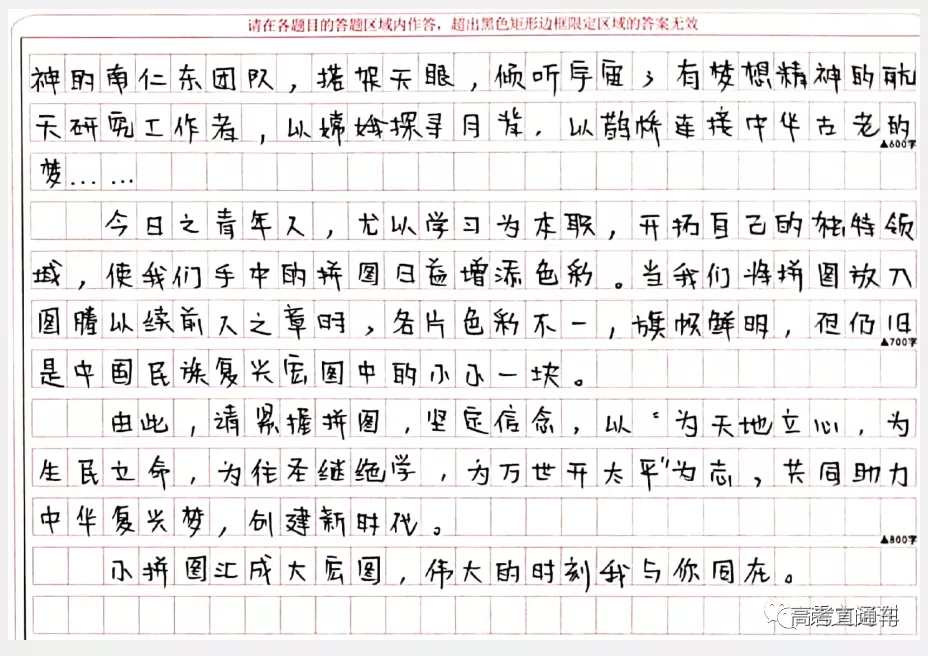 请在各题目的答题区域内作答，超出黑色矩形边框限定区域的答案无效
神的南仁东团队，搭架天眼，倾听宇宙；有梦想精神的航
天研究工作者，以嫦娥探寻月背，以鹊桥连接中华古老的
▲600字
梦……
今日之青年人，尤以学习为本职，开拓自己的独特领
域，使我们手中的拼图日益增添色彩。当我们将拼图放入
图腾以续前人之章时，各片色彩不一，旗帜鲜明，但仍旧
▲700字
是中国民族复兴宏图中的小小一块。
由此，请紧握拼图，坚定信念，以“为天地立心，为
生民立命，为往圣继绝学，为万世开太平”为志，共同助力
中华复兴梦，创建新时代。
▲800字
小拼图汇成大宏图，伟大的时刻我与你同在。
高考直通车